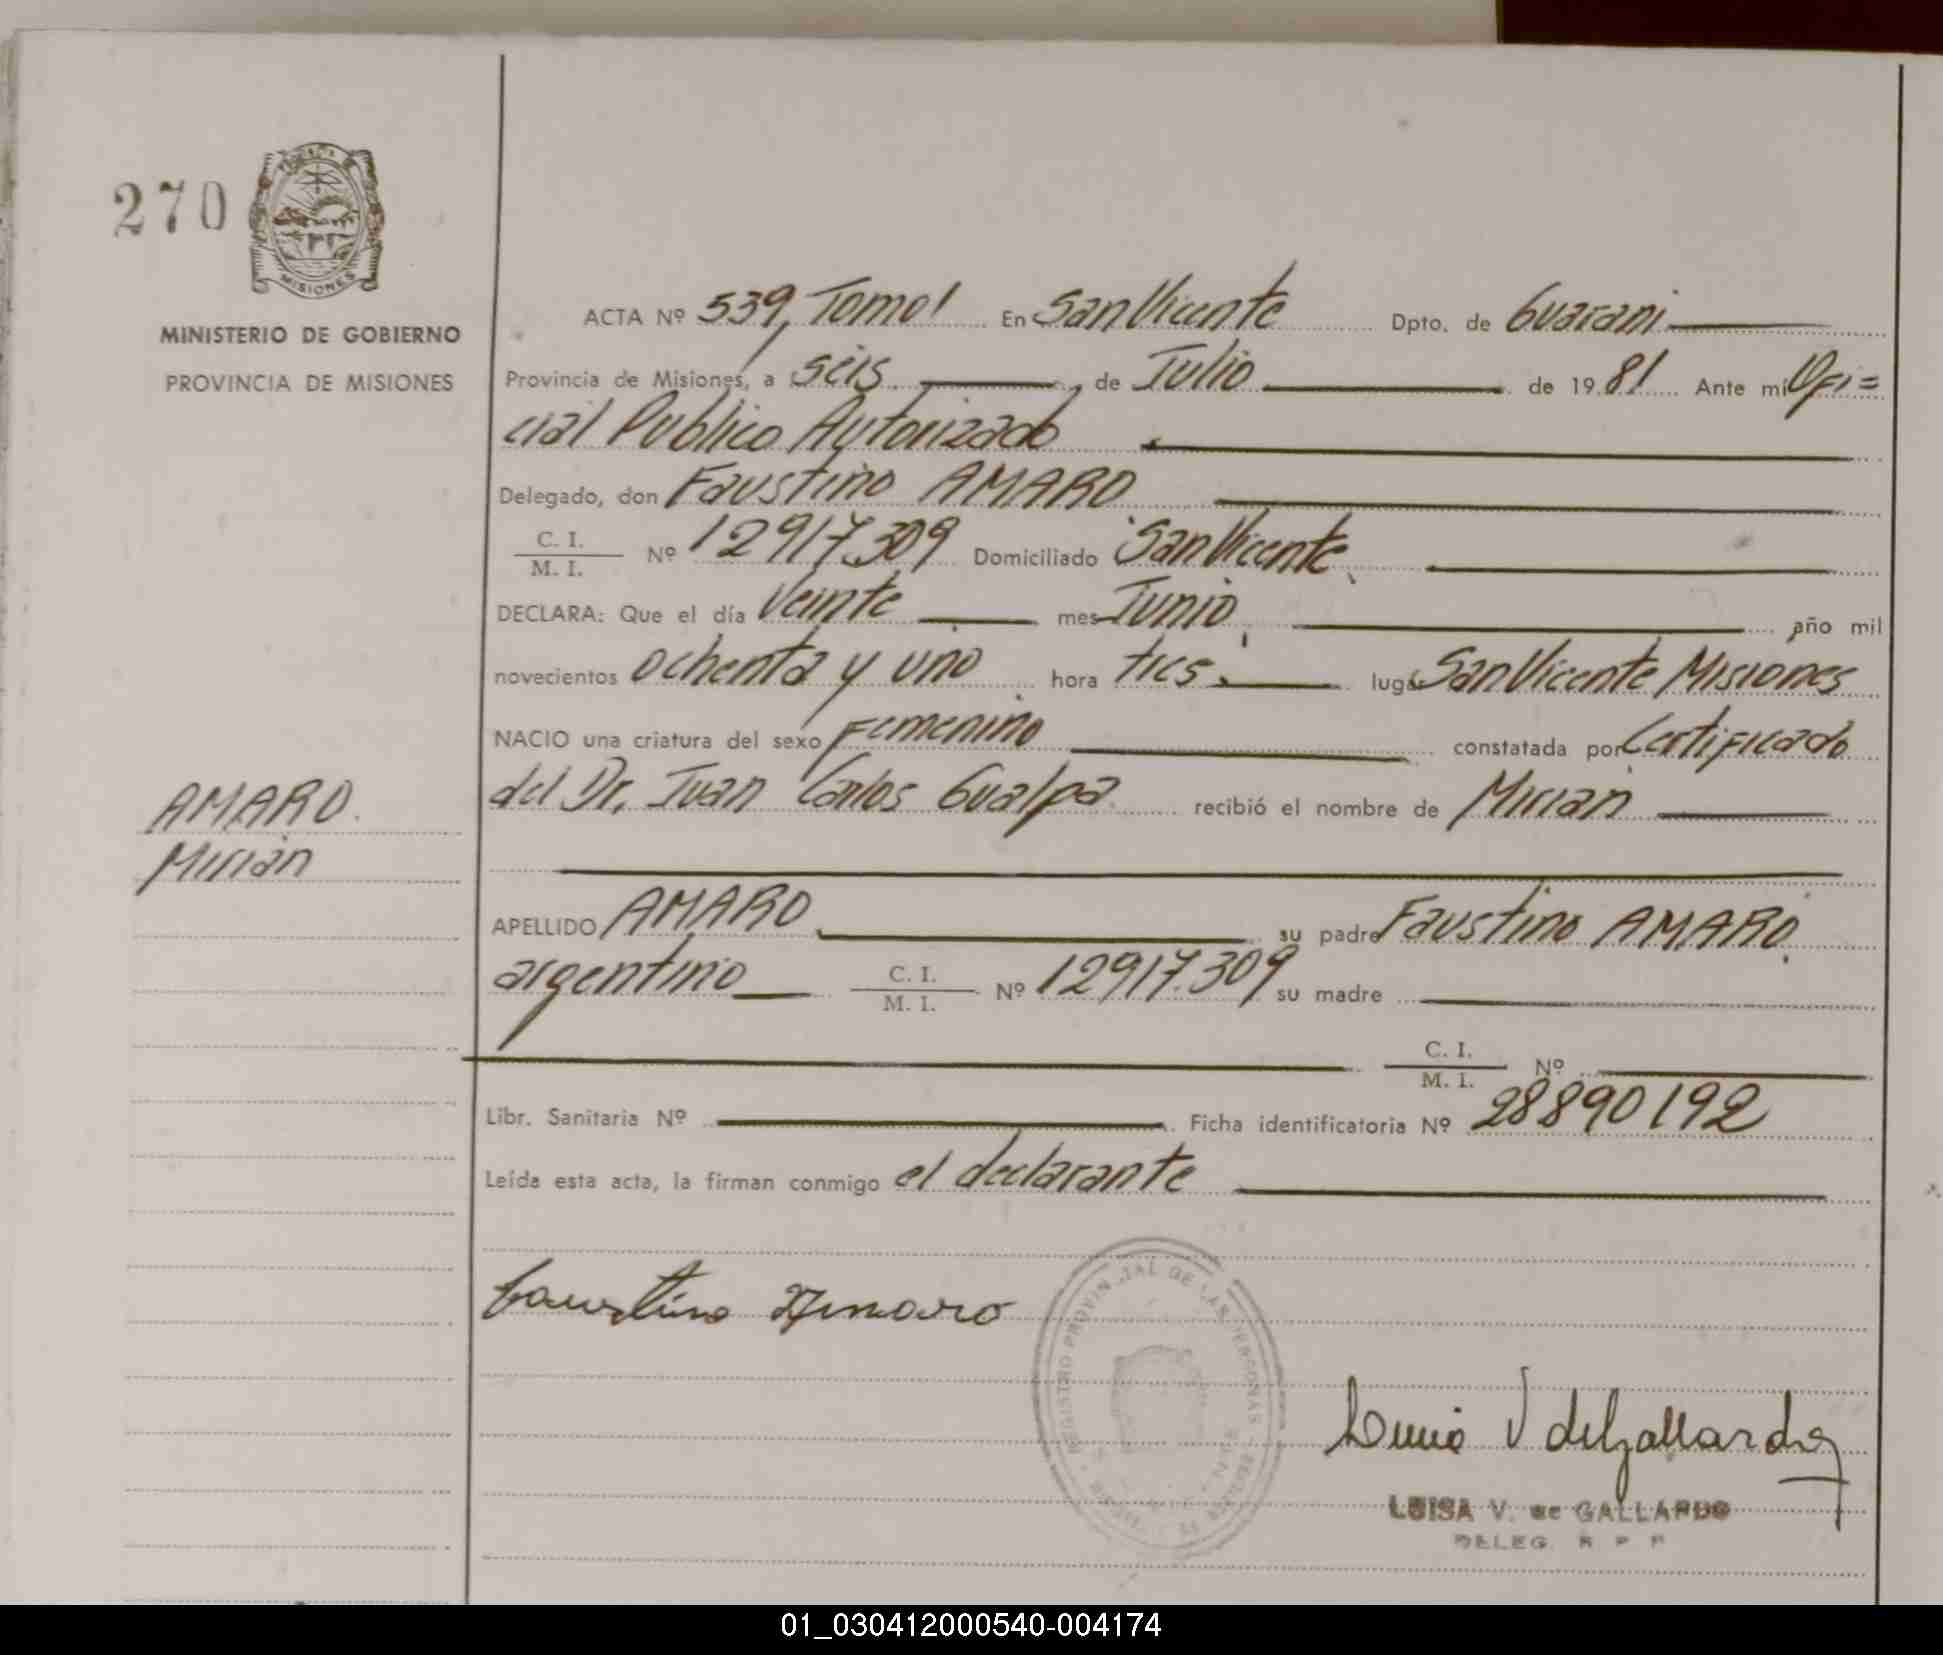 270
MISIONES
MINISTERIO DE GOBIERNO
PROVINCIA DE MISIONES
ACTA Nº 539, Tomo I En San Vicente Dpto. de Guarani
Provincia de Misiones, a seis, de Julio de 1981 Ante mi Ofi=
cial Publico Autorizado
Delegado, don Faustino AMARO
C. I.
M. I. Nº 12917.309 Domiciliado San Vicente
DECLARA: Que el día Veinte mes Junio, año mil
novecientos ochenta y uno hora tres. lugar San Vicente Misiones
NACIO una criatura del sexo Femenino constatada por Certificado
del Dr. Juan Carlos Gualpa. recibió el nombre de Mirian
AMARO.
Mirian
APELLIDO AMARO su padre Faustino AMARO,
argentino C. I.
M. I. Nº 12917.309 su madre
C. I.
M. I. Nº
Libr. Sanitaria Nº Ficha identificatoria Nº 28890192
Leída esta acta, la firman conmigo el declarante
Faustino Amaro
REGISTRO PROVINCIAL DE LAS PERSONAS
Luisa V de Gallardo
LUISA V. de GALLARDO
DELEG. R P P
01_030412000540-004174